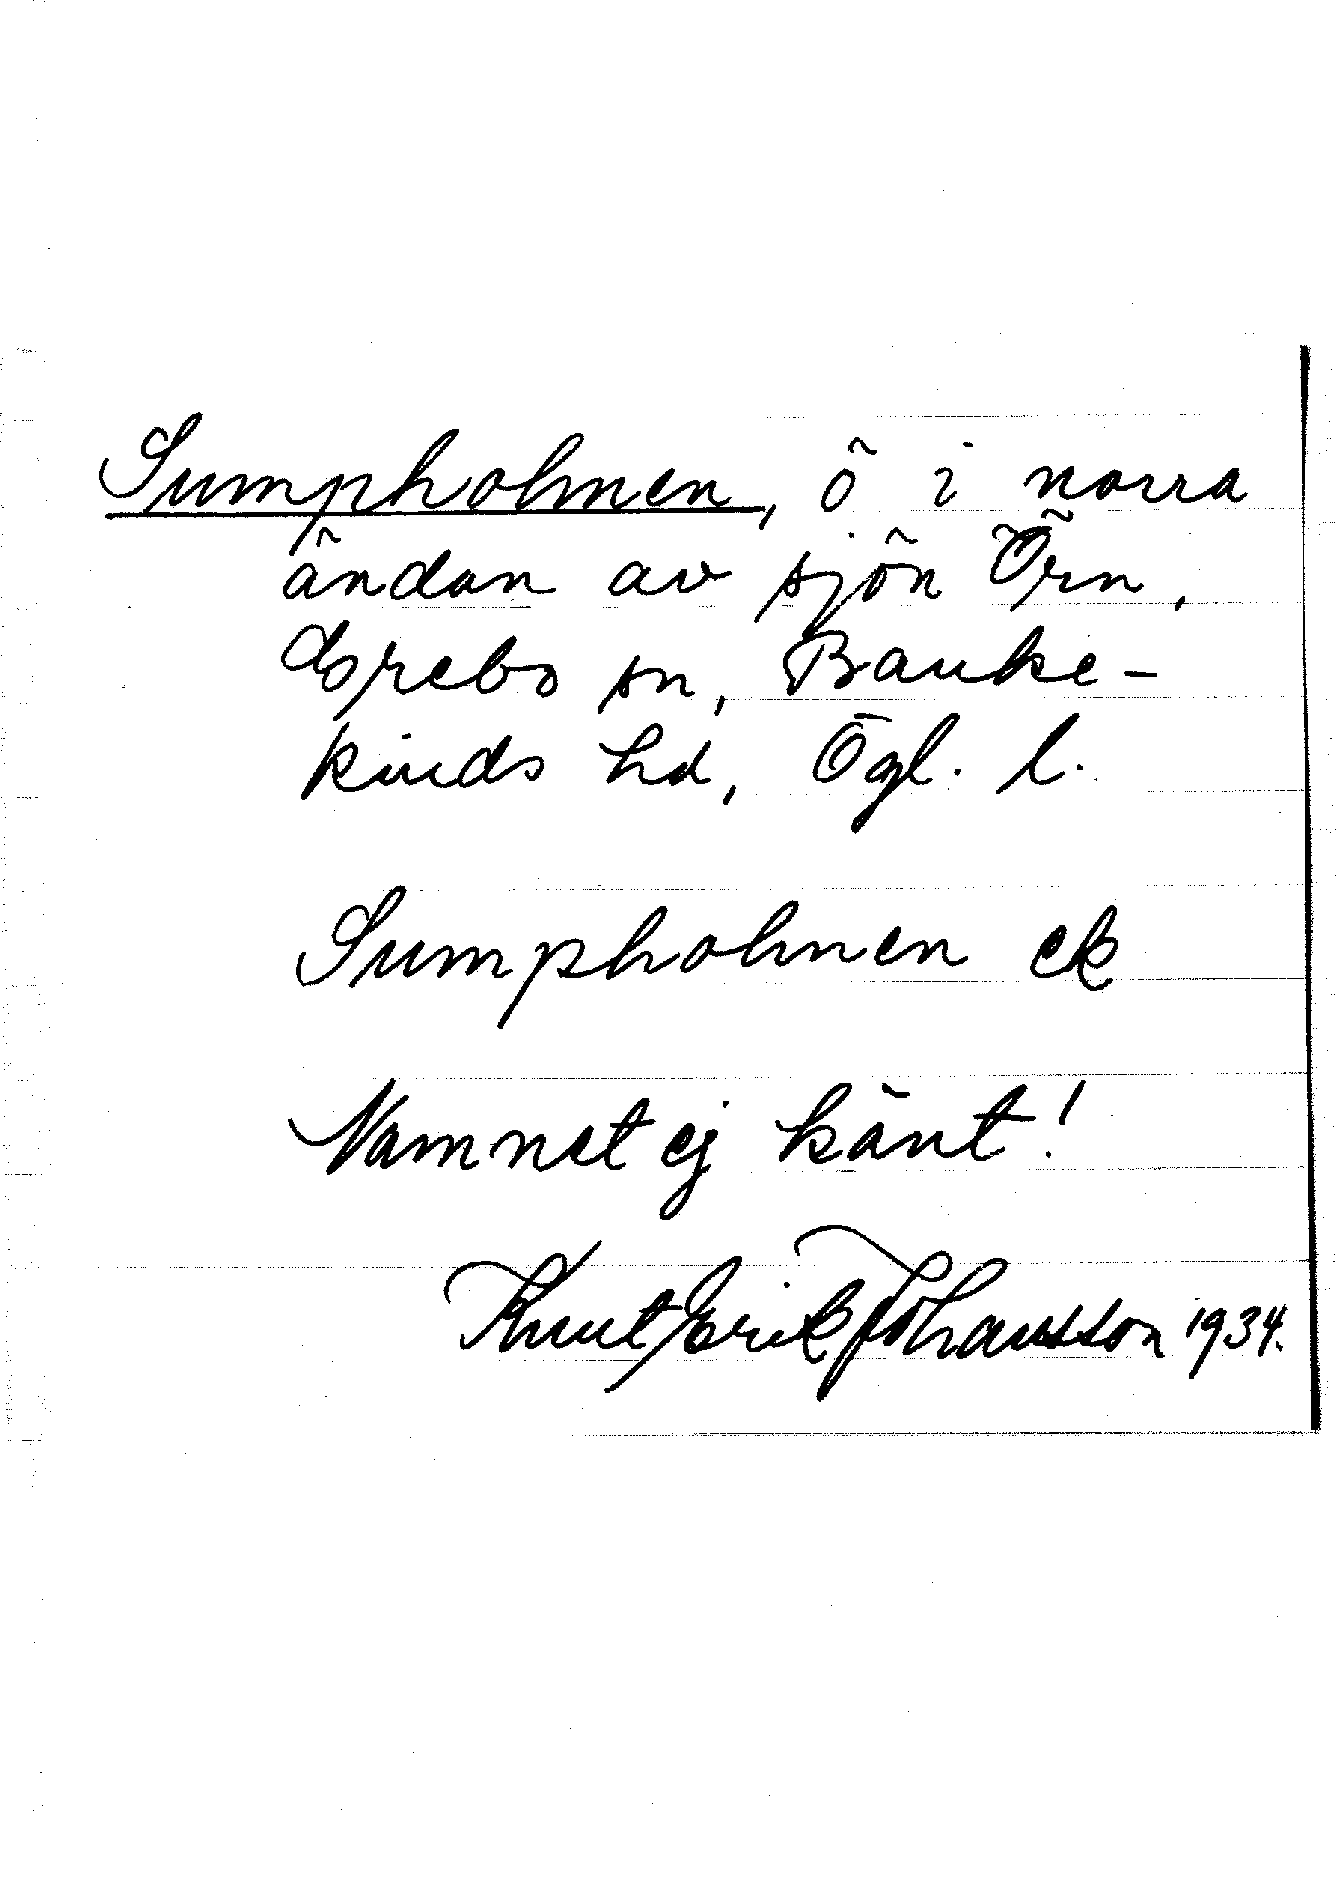 Sumpholmen, ö i norra
ändan av sjön Örn,
Grebo sn, Banke-
kinds hd, Ögl. l.
Sumpholmen ek
Namnet ej känt!
Knut Erik Johansson 1934.